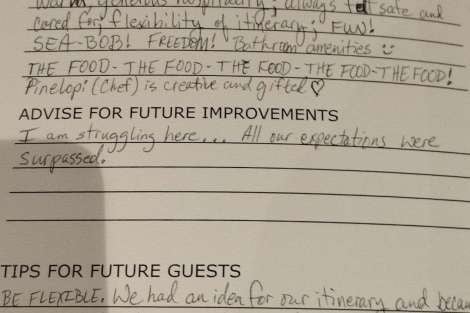 Warm, generous hospitality; always felt safe and
cared for; flexibility of itinerary; FUN!
SEA-BOB! FREEDOM! Bathroom amenities
THE FOOD - THE FOOD - THE FOOD - THE FOOD - THE FOOD!
Pinelopi (Chef) is creative and gifted
ADVISE FOR FUTURE IMPROVEMENTS
I am struggling here... All our expectations were
surpassed.
TIPS FOR FUTURE GUESTS
BE FLEXIBLE. We had an idea for our itinerary and